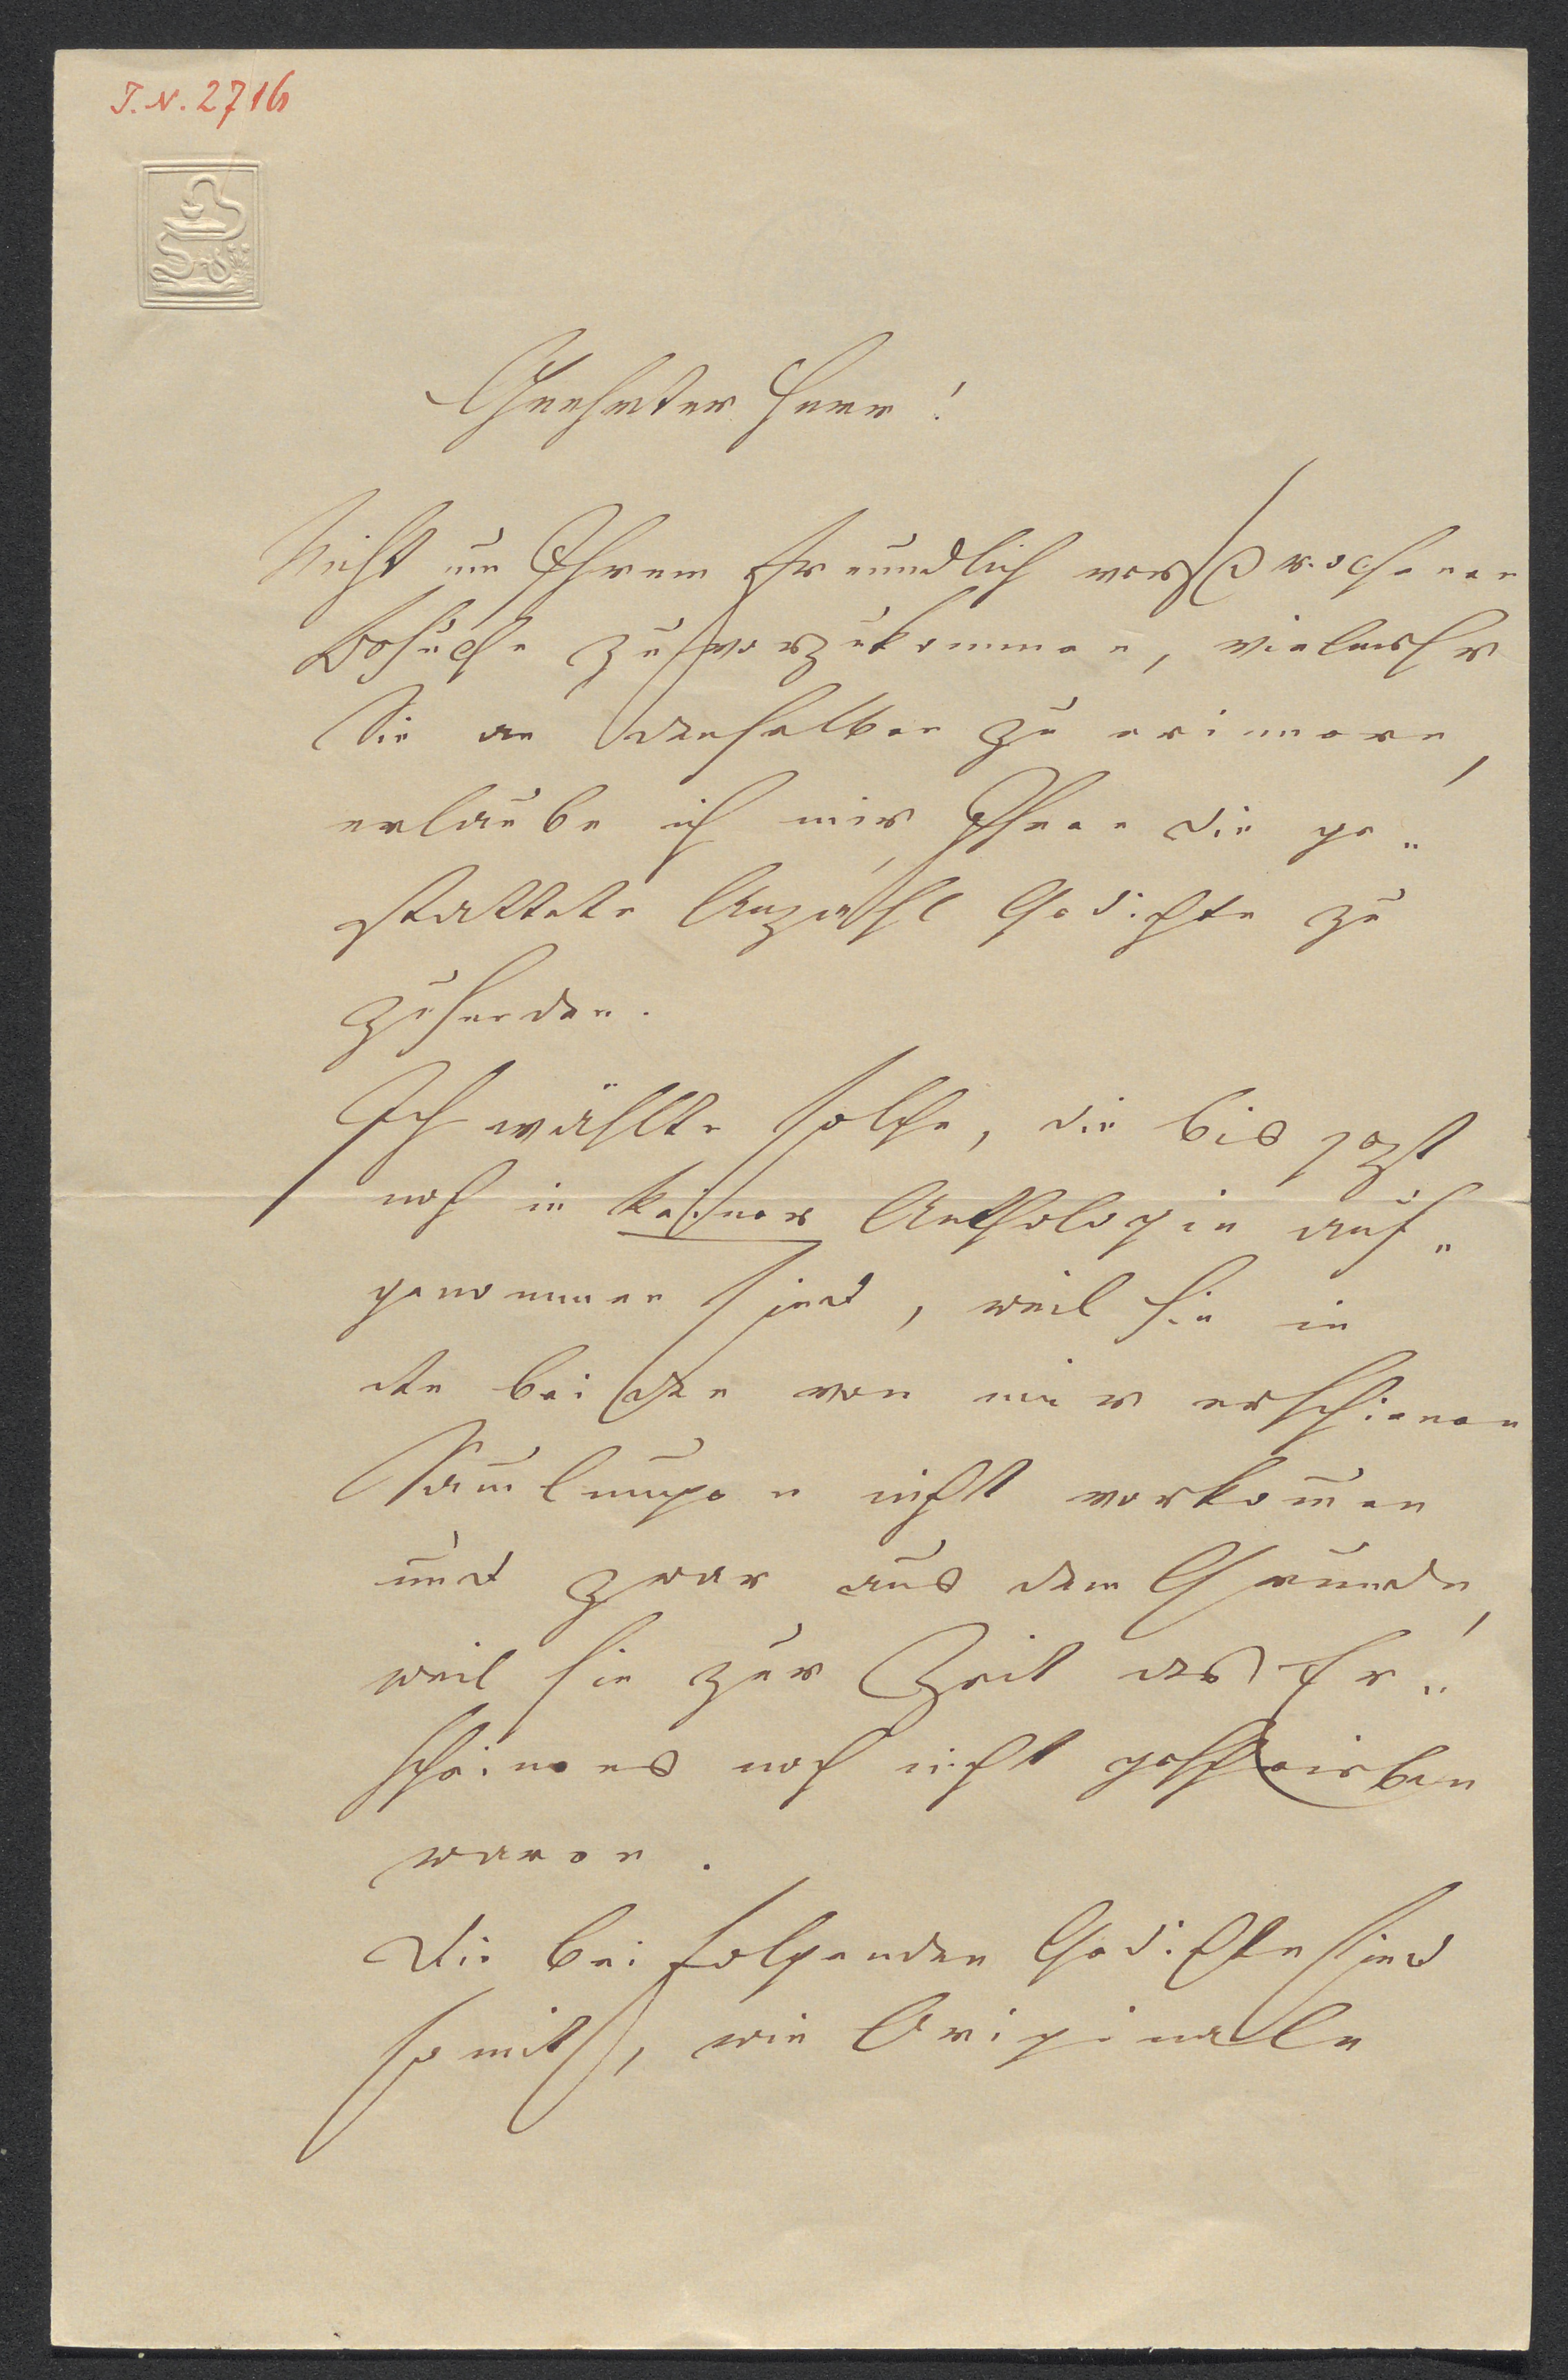 I.N. 2716
Geehrter Herr!
Nicht um Ihrem freundlich versprochenen
Besuche zuvorzukommen, vielmehr
Sie an denselben zu erinnern,
erlaube ich mir Ihnen die ge„
stattete Anzahl Gedichte zu
zusenden.
Ich wählte solche, die bis jezt
noch in keiner Anthologie auf„
genommen sind, weil sie in
den beiden von mir erschienen
Sam̅lungen nicht vorkom̅en
und zwar aus dem Grunde,
weil sie zur Zeit des Er„
scheinens noch nicht geschrieben
waren.
Die beifolgenden Gedichte sind
somit, wie Originalle